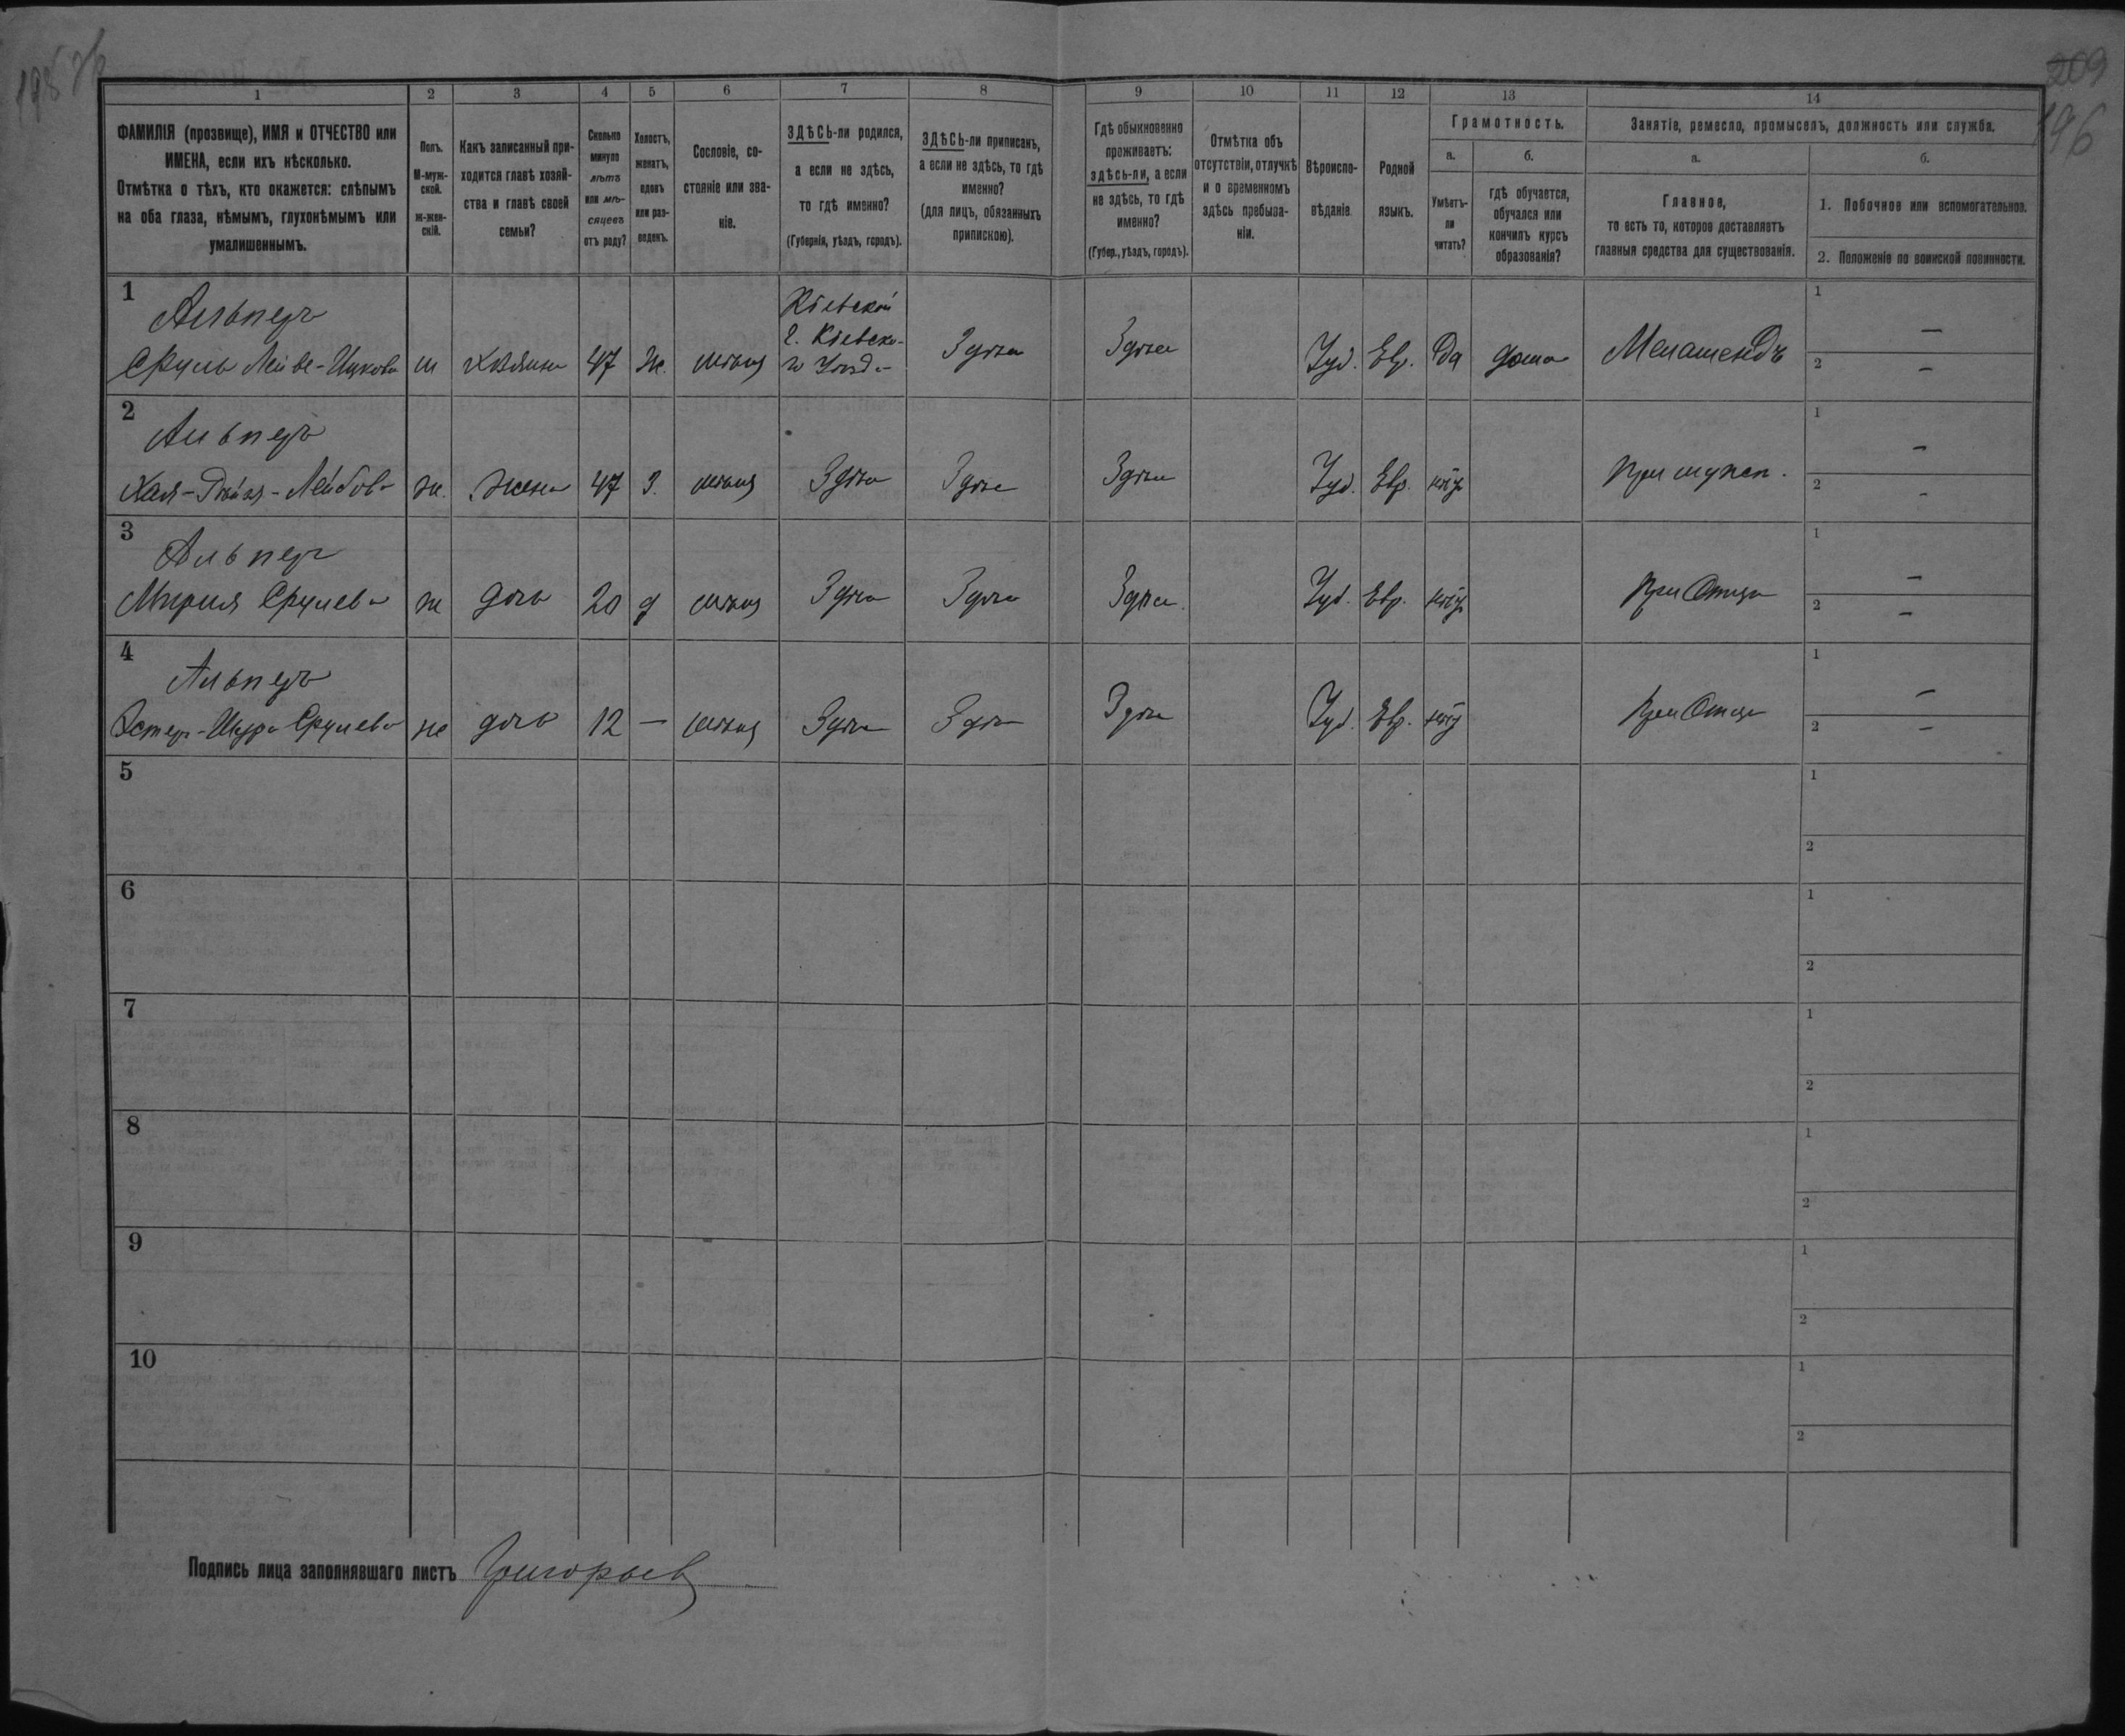 195 об
209
196
1 2 3 4 5 6 7 8 9 10 11 12 13 14
ФАМИЛІЯ (прозвище), ИМЯ и ОТЧЕСТВО или
ИМЕНА, если ихъ нѣсколько.
Отмѣтка о тѣхъ, кто окажется: слѣпымъ
на оба глаза, нѣмымъ, глухонѣмымъ или
умалишеннымъ.
Полъ.
М-муж-
ской.
ж-жен-
скій.
Какъ записанный при-
ходится главѣ хозяй-
ства и главѣ своей
семьи?
Сколько
минуло
лѣтъ
или мѣ-
сяцевъ
отъ роду?
Холостъ,
женатъ,
вдовъ
или раз-
веденъ.
Сословіе, со-
стояніе или зва-
ніе.
ЗДѢСЬ-ли родился,
а если не здѣсь,
то гдѣ именно?
(Губернія, уѣздъ, городъ).
ЗДѢСЬ-ли приписанъ,
а если не здѣсь, то гдѣ
именно?
(для лицъ, обязанныхъ
припискою).
Гдѣ обыкновенно
проживаетъ:
здѣсь-ли, а если
не здѣсь, то гдѣ
именно?
(Губер., уѣздъ, городъ).
Отмѣтка объ
отсутствіи, отлучкѣ
и о временномъ
здѣсь пребыва-
ніи.
Вѣроиспо-
вѣданіе.
Родной
языкъ.
Грамотность.
а.
Умѣетъ-
ли
читать?
б.
гдѣ обучается,
обучался или
кончилъ курсъ
образованія?
Занятіе, ремесло, промыселъ, должность или служба.
а.
Главное,
то есть то, которое доставляетъ
главныя средства для существованія.
б.
1. Побочное или вспомогательное.
2. Положеніе по воинской повинности.
1
Альперъ
Сруль Лейве-Ицкова
м
хозяинъ
47
Ж.
Кіевской
г. Кіевска-
го Уѣзда
Здѣсь
Здѣсь
Іуд.
Евр.
Да
дома
Меламедъ
1 —
2 —
2
Альперъ
Хая- Лейбова
ж.
жена
47
З.
Здѣсь
Здѣсь
Здѣсь
Іуд.
Евр.
нѣтъ
при мужѣ.
1 —
2 -
3
Альперъ
Мирия Срулева
ж
дочь
20
д
Здѣсь
Здѣсь
Здѣсь
Іуд.
Евр.
нѣтъ
При Отцѣ
1 —
2 —
4
Альперъ
Эстеръ- Срулева
ж
дочь
12
—
Здѣсь
Здѣсь
Здѣсь
Іуд.
Евр.
нѣтъ
При Отцѣ
1 —
2 —
5
1
2
6
1
2
7
1
2
8
1
2
9
1
2
10
1
2
Подпись лица заполнявшаго листъ Григорьев